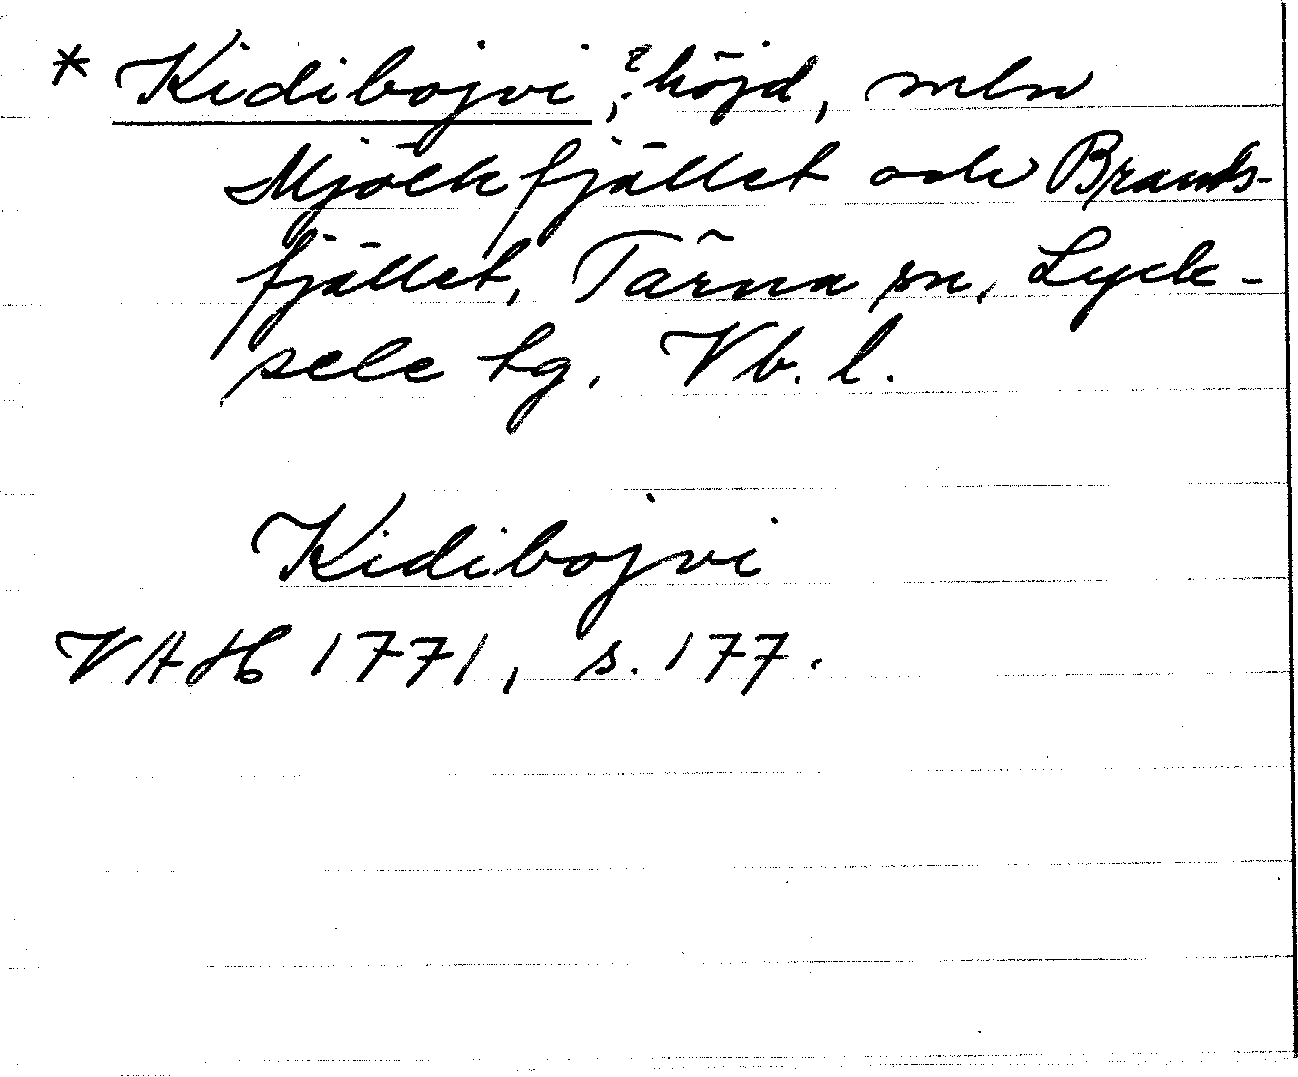 * Kidibojvi, ? höjd, mln
Mjölkfjället och Brands-
fjället, Tärna sn, Lyck-
sele tg. Vb. l.
Kidibojvi
VAH 1771, s. 177.